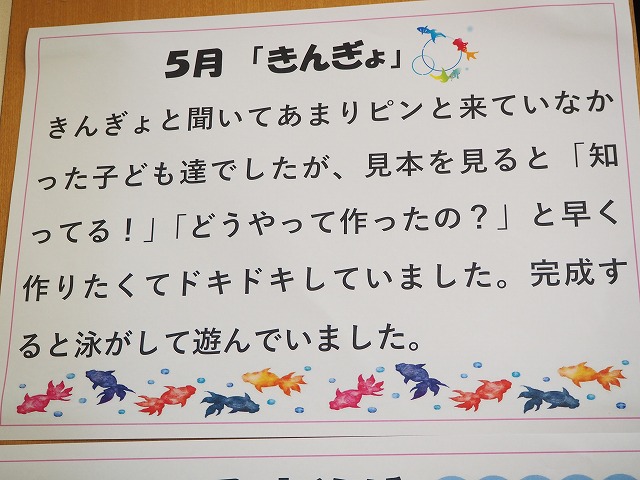 5月「きんぎょ」
きんぎょと聞いてあまりピンと来ていなか
った子ども達でしたが、見本を見ると「知
ってる！」「どうやって作ったの？」と早く
作りたくてドキドキしていました。完成す
ると泳がして遊んでいました。